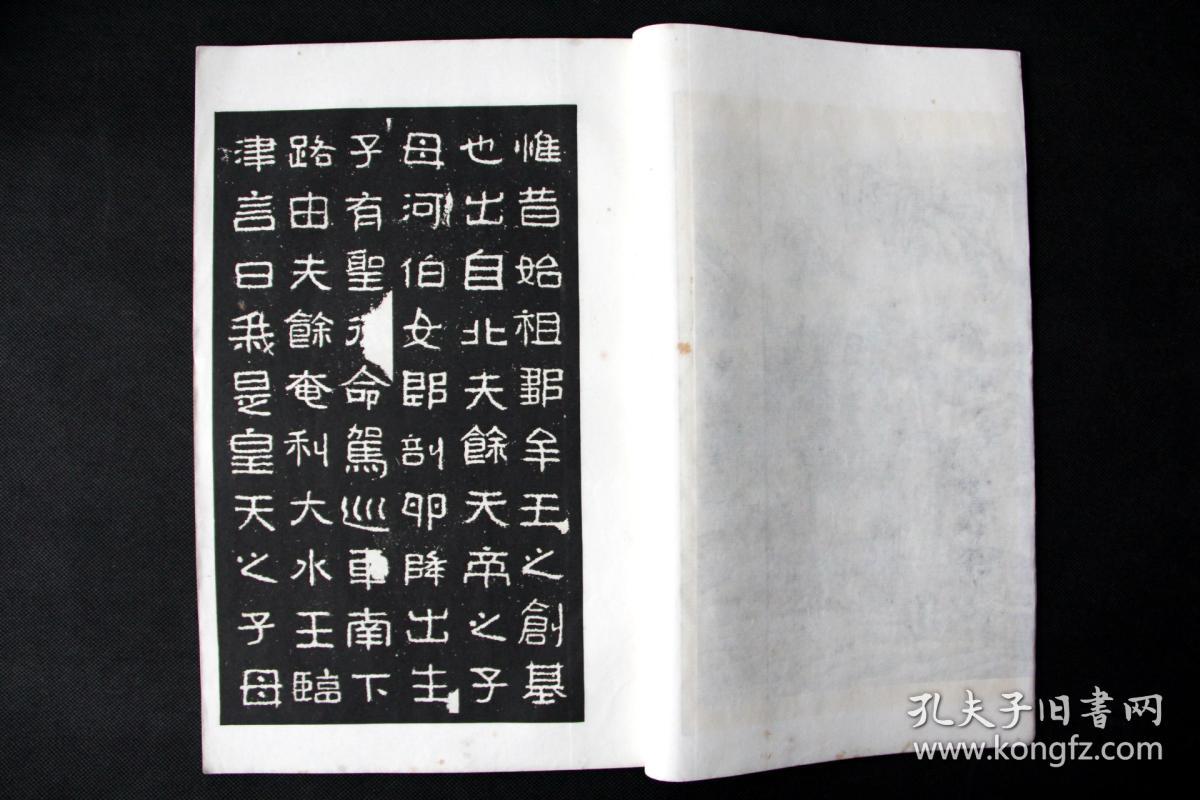 惟昔始祖鄒牟王之創基
也出自北夫餘天帝之子
母河伯女郎剖卵降出生
子有聖命駕巡車南下
路由夫餘奄利大水王臨
津言曰我是皇天之子母
孔夫子旧書网
www.kongfz.com